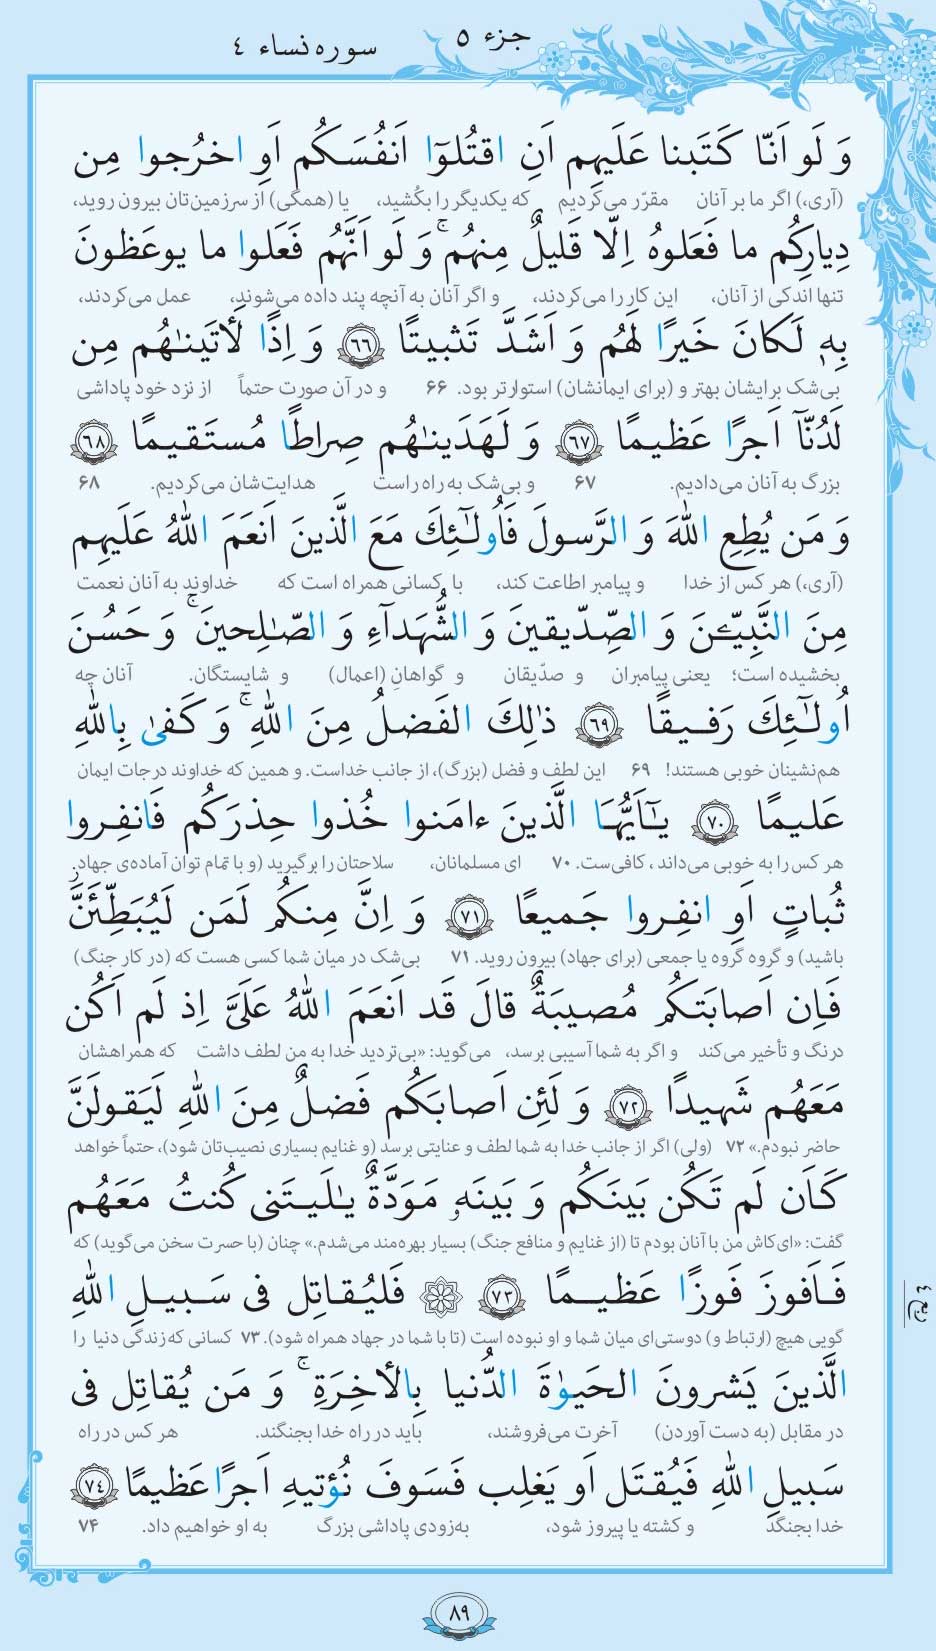 جزء ۵
سوره نساء ٤
وَ لَو اَنّا كَتَبنا عَلَيهِم اَنِ اقتُلوٓا اَنفُسَكُم اَوِ اخرُجوا مِن
(آری،) اگر ما بر آنان مقرّر می‌کردیم که یکدیگر را بکُشید، یا (همگی) از سرزمین‌تان بیرون روید،
دِيارِكُم ما فَعَلوهُ اِلّا قَليلٌ مِنهُم ۚ وَ لَو اَنَّهُم فَعَلوا ما يوعَظونَ
تنها اندکی از آنان، این کار را می‌کردند، و اگر آنان به آنچه پند داده می‌شوند، عمل می‌کردند،
بِهٖ لَكانَ خَيرًا لَهُم وَ اَشَدَّ تَثبيتًا ﴿٦٦﴾ وَ اِذًا لَأٰتَينٰهُم مِن
بی‌شک برایشان بهتر و (برای ایمانشان) استوارتر بود. ۶۶ و در آن صورت حتماً از نزد خود پاداشی
لَدُنّآ اَجرًا عَظيمًا ﴿٦٧﴾ وَ لَهَدَينٰهُم صِراطًا مُستَقيمًا ﴿٦٨﴾
بزرگ به آنان می‌دادیم. ۶۷ و بی‌شک به راه راست هدایت‌شان می‌کردیم. ۶۸
وَ مَن يُطِعِ اللهَ وَ الرَّسولَ فَاُولٰٓئِكَ مَعَ الَّذينَ اَنعَمَ اللهُ عَلَيهِم
(آری،) هر کس از خدا و پیامبر اطاعت کند، با کسانی همراه است که خداوند به آنان نعمت
مِنَ النَّبِيّـۧنَ وَ الصِّدّيقينَ وَ الشُّهَدآءِ وَ الصّٰلِحينَ ۚ وَ حَسُنَ
بخشیده است؛ یعنی پیامبران و صدّیقان و گواهانِ (اعمال) و شایستگان. آنان چه
اُولٰٓئِكَ رَفيقًا ﴿٦٩﴾ ذٰلِكَ الفَضلُ مِنَ اللهِ ۚ وَ كَفىٰ بِاللهِ
هم‌نشینان خوبی هستند! ۶۹ این لطف و فضل (بزرگ)، از جانب خداست. و همین که خداوند درجات ایمان
عَليمًا ﴿٧٠﴾ يٰٓاَيُّهَا الَّذينَ ءامَنوا خُذوا حِذرَكُم فَانفِروا
هر کس را به خوبی می‌داند، کافی‌ست. ۷۰ ای مسلمانان، سلاحتان را برگیرید (و با تمام توان آماده‌ی جهاد
ثُباتٍ اَوِ انفِروا جَميعًا ﴿٧١﴾ وَ اِنَّ مِنكُم لَمَن لَيُبَطِّئَنَّ
باشید) و گروه گروه یا جمعی (برای جهاد) بیرون روید. ۷۱ بی‌شک در میان شما کسی هست که (در کار جنگ)
فَاِن اَصابَتكُم مُصيبَةٌ قالَ قَد اَنعَمَ اللهُ عَلَيَّ اِذ لَم اَكُن
درنگ و تأخیر می‌کند و اگر به شما آسیبی برسد، می‌گوید: «بی‌تردید خدا به من لطف داشت که همراهشان
مَعَهُم شَهيدًا ﴿٧٢﴾ وَ لَئِن اَصابَكُم فَضلٌ مِنَ اللهِ لَيَقولَنَّ
حاضر نبودم.» ۷۲ (ولی) اگر از جانب خدا به شما لطف و عنایتی برسد (و غنایم بسیاری نصیب‌تان شود)، حتماً خواهد
كَاَن لَم تَكُن بَينَكُم وَ بَينَهٗ مَوَدَّةٌ يٰلَيتَنى كُنتُ مَعَهُم
گفت: «ای‌کاش من با آنان بودم تا (از غنایم و منافع جنگ) بسیار بهره‌مند می‌شدم.» چنان (با حسرت سخن می‌گوید) که
فَاَفوزَ فَوزًا عَظيمًا ﴿٧٣﴾ ۞ فَليُقاتِل فى سَبيلِ اللهِ
گویی هیچ (ارتباط و) دوستی‌ای میان شما و او نبوده است (تا با شما در جهاد همراه شود). ۷۳ کسانی که زندگی دنیا را
الَّذينَ يَشرونَ الحَيوٰةَ الدُّنيا بِالأٰخِرَةِ ۚ وَ مَن يُقاتِل فى
در مقابل (به دست آوردن) آخرت می‌فروشند، باید در راه خدا بجنگند. هر کس در راه
سَبيلِ اللهِ فَيُقتَل اَو يَغلِب فَسَوفَ نُؤتيهِ اَجرًا عَظيمًا ﴿٧٤﴾
خدا بجنگد و کشته یا پیروز شود، به‌زودی پاداشی بزرگ به او خواهیم داد. ۷۴
ربع ٤
٨٩